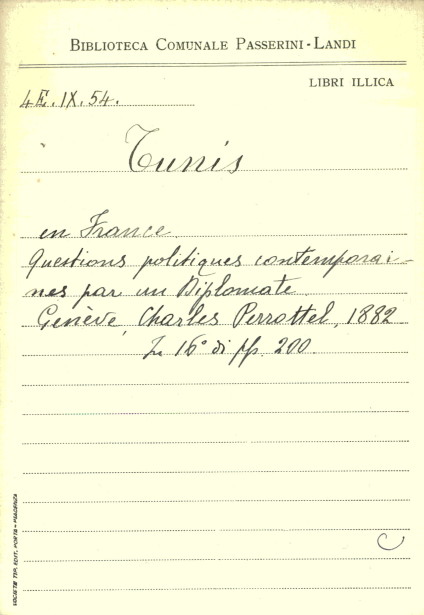 BIBLIOTECA COMUNALE PASSERINI-LANDI
LIBRI ILLICA
4E. IX. 54.
Tunis
en France
Questions politiques contemporai-
nes par un Diplomate
Genève, Charles Perrottel, 1882
In 16° di pp. 200.
SOCIETÀ TIP. EDIT. PORTA - PIACENZA
C